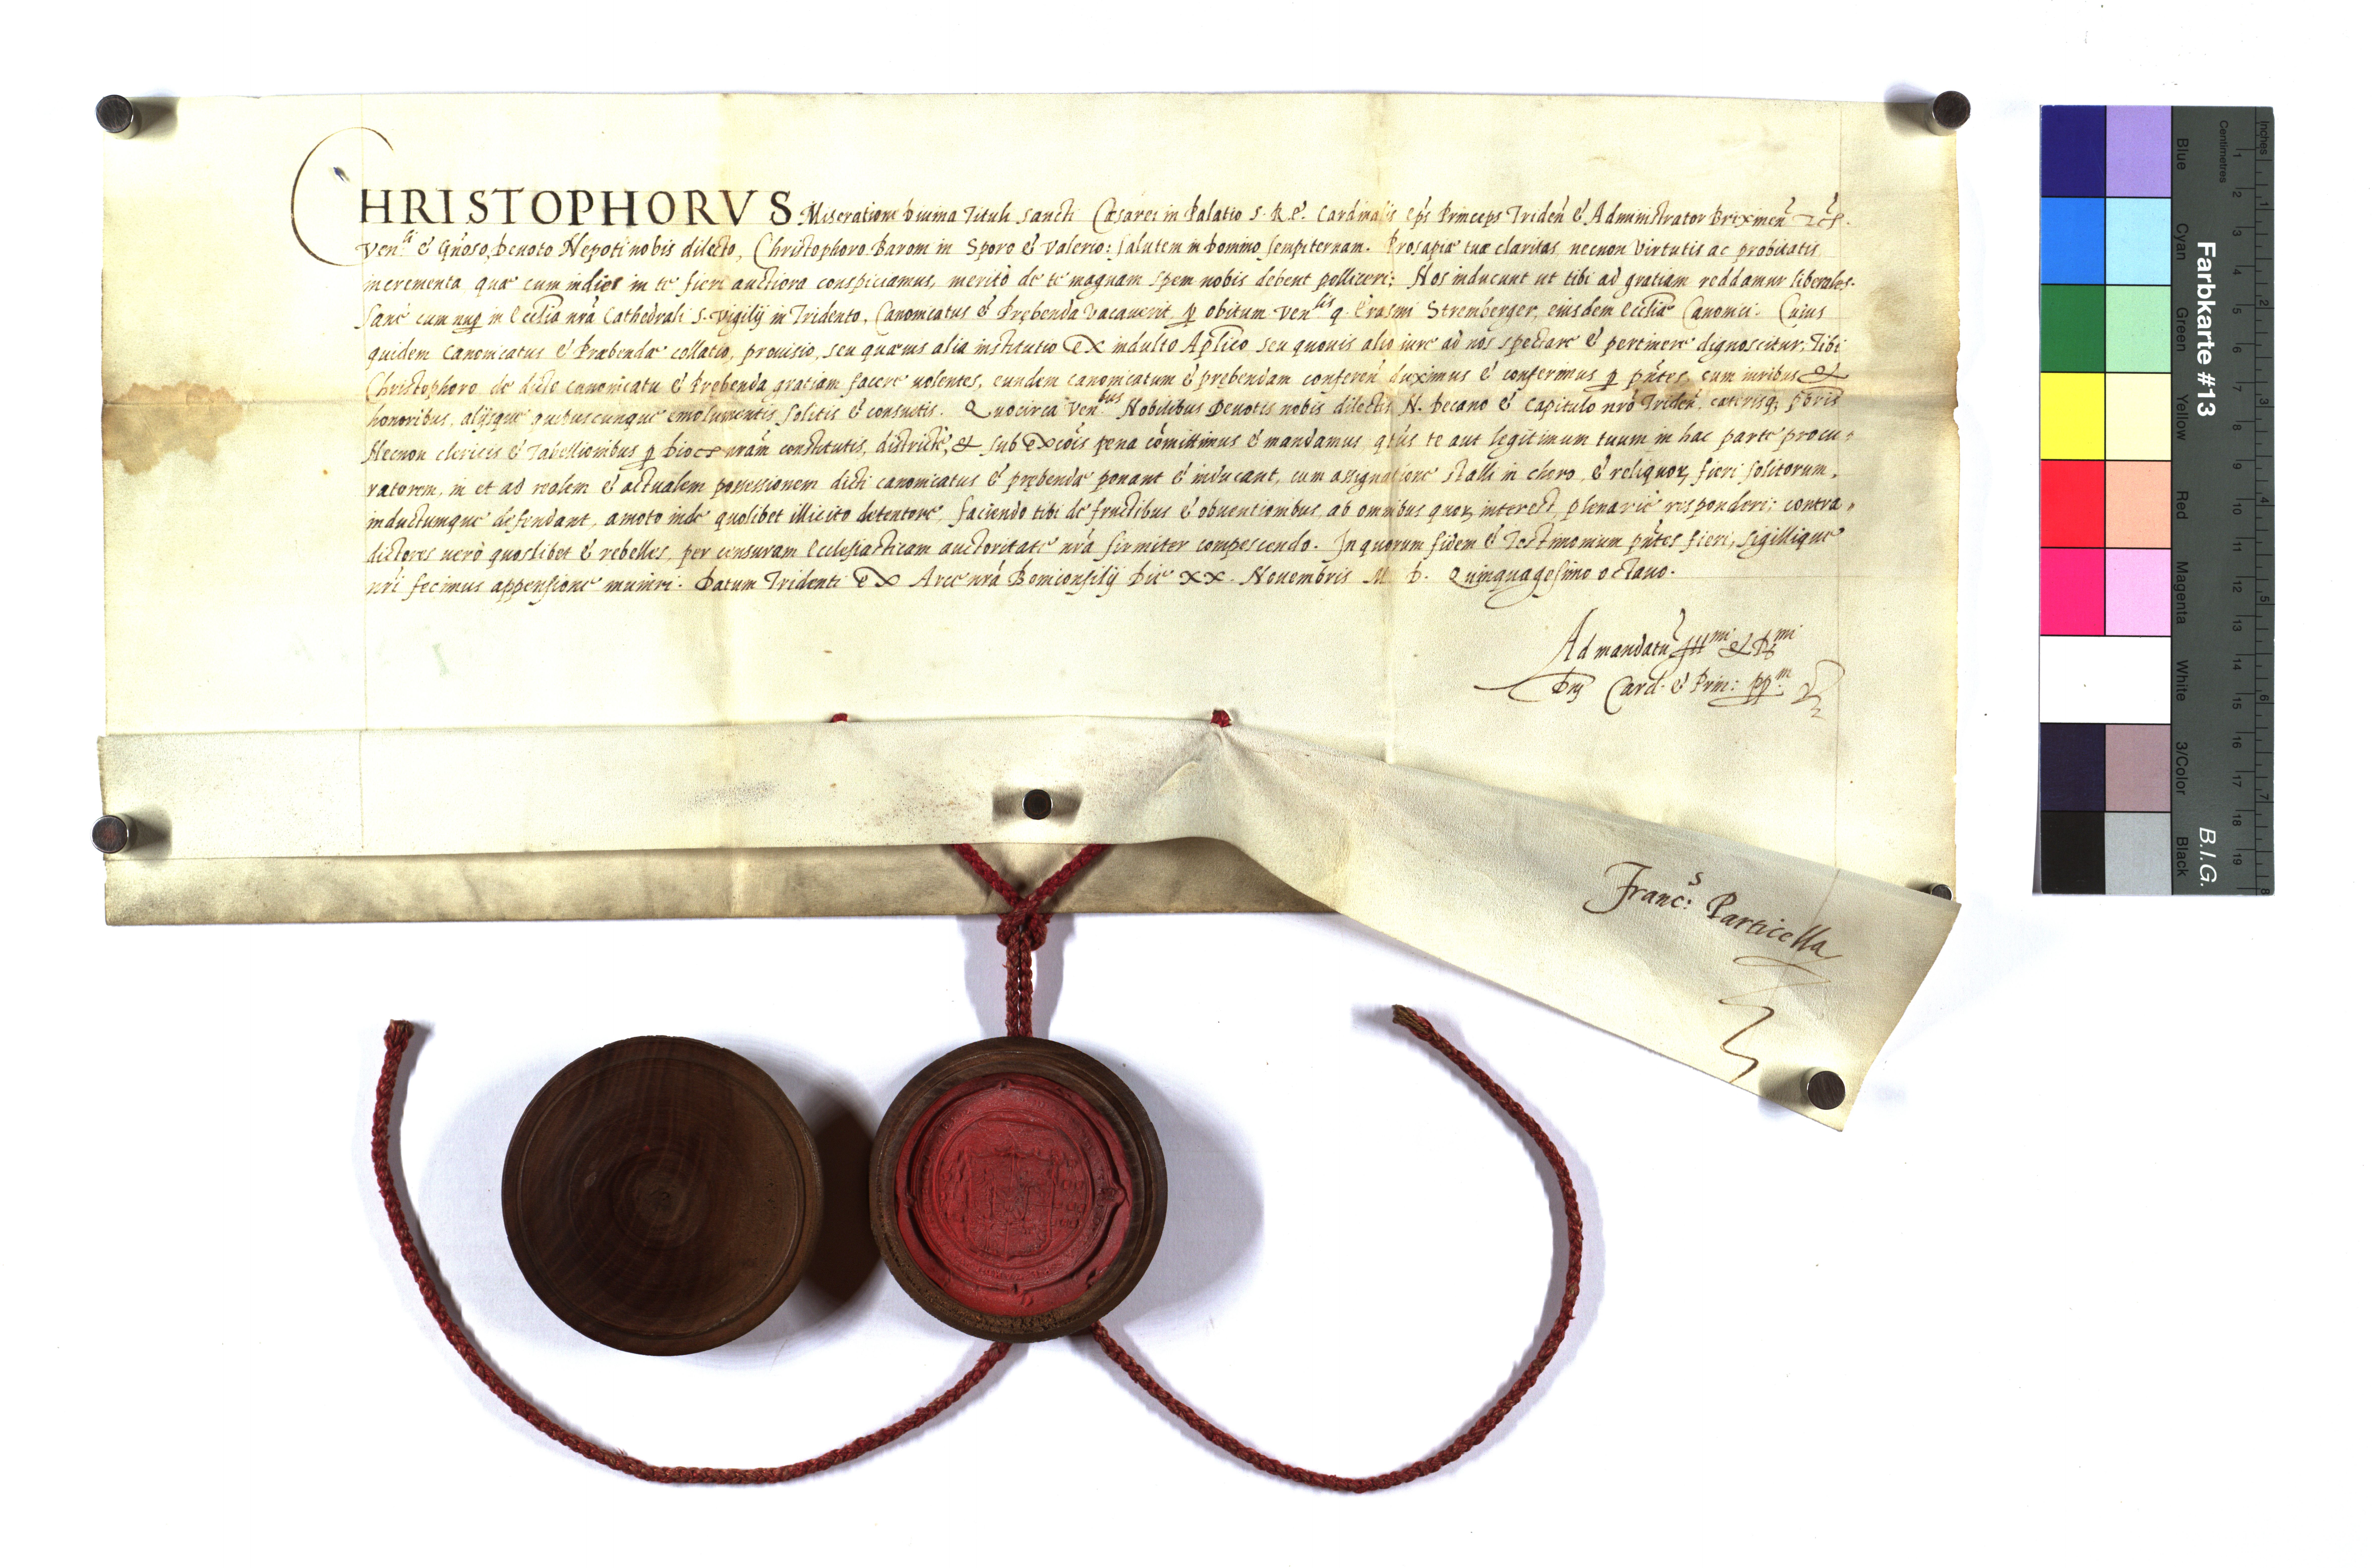 CHRISTOPHORVS Miseratione diuina Tituli Sancti Cęsarei in Palatio S. R. E. Cardinalis Eps Princeps Triden̄ & Administrator Brixinen̄ etc.
Ven.li & Gn̄oso, Deuoto Nepoti nobis dilecto, Christophoro Baroni in Sporo & Valerio: Salutem in Domino sempiternam. Prosapiæ tuæ claritas necnon Virtutis ac probitatis
incrementa quæ cum indies in te fieri auctiora conspiciamus, meritò de te magnam spem nobis debent polliceri; Nos inducunt ut tibi ad gratiam reddamur liberales.
Sanè cum nup in Ecclīa nrā Cathedrali S. Vigilij in Tridento, Canonicatus & Prębenda vacauerit, p obitum Ven.lis q. Erasmi Stremberger, eiusdem Ecclīæ Canonici. Cuius
quidem Canonicatus & Præbendæ collatio, prouisio, seu quæuis alia institutio ex indulto Aplico seu quouis alio iure ad nos spectare & pertinere dignoscitur, Tibi
Christophoro de dicte canonicatu & Prebenda gratiam facere uolentes, eundem canonicatum & prębendam conferen̄ duximus & conferimus p pn̄tes, cum iuribus &
honoribus, alijsque quibuscunque emolumentis, solitis & consuetis. Quocirca Ven.bus Nobilibus Deuotis nobis dilectis N. Decano & Capitulo nrō Triden̄. cæterisq; pbris
Necnon clericis & Tabellionibus p dioces nrām constitutis, districtè, & sub excōis pena cōmittimus & mandamus, qtūs te aut legitimum tuum in hac parte procu=
ratorem, in et ad realem & actualem possessionem dicti canonicatus & prębendæ ponant & inducant, cum assignatione stalli in choro, & reliquor, fieri solitorum,
inductumque defendant, amoto inde quolibet illicito detentore, faciendo tibi de fructibus & obuentionibus, ab omnibus quor, interest, plenariè responderi; contra=
dictores uerò quoslibet & rebelles, per censuram Ecclesiasticam auctoritate nrā firmiter compescendo. In quorum fidem & Testimonium pn̄tes fieri, sigillique
nrī fecimus appensione muniri. Datum Tridenti ex Arce nrā Boniconsilij Die XX. Nouembris M D. Quinquagesimo octauo.
Ad mandatū Ill.mi & R.mi
Dnj Card. & Prin: pp.m
Franc.s Particella
Farbkarte #13
B.I.G.
Blue
Cyan
Green
Yellow
Red
Magenta
White
3/Color
Black
Centimetres
1 2 3 4 5 6 7 8 9 10 11 12 13 14 15 16 17 18 19
Inches
1 2 3 4 5 6 7 8